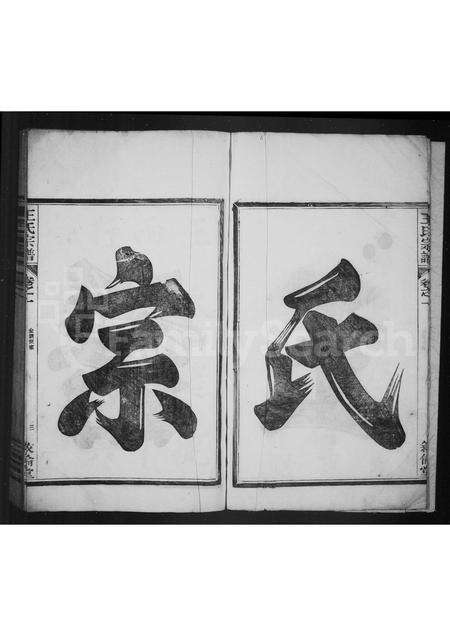 氏
宗
王氏宗譜
卷之一
三
王氏宗譜
卷之一
FamilySearch